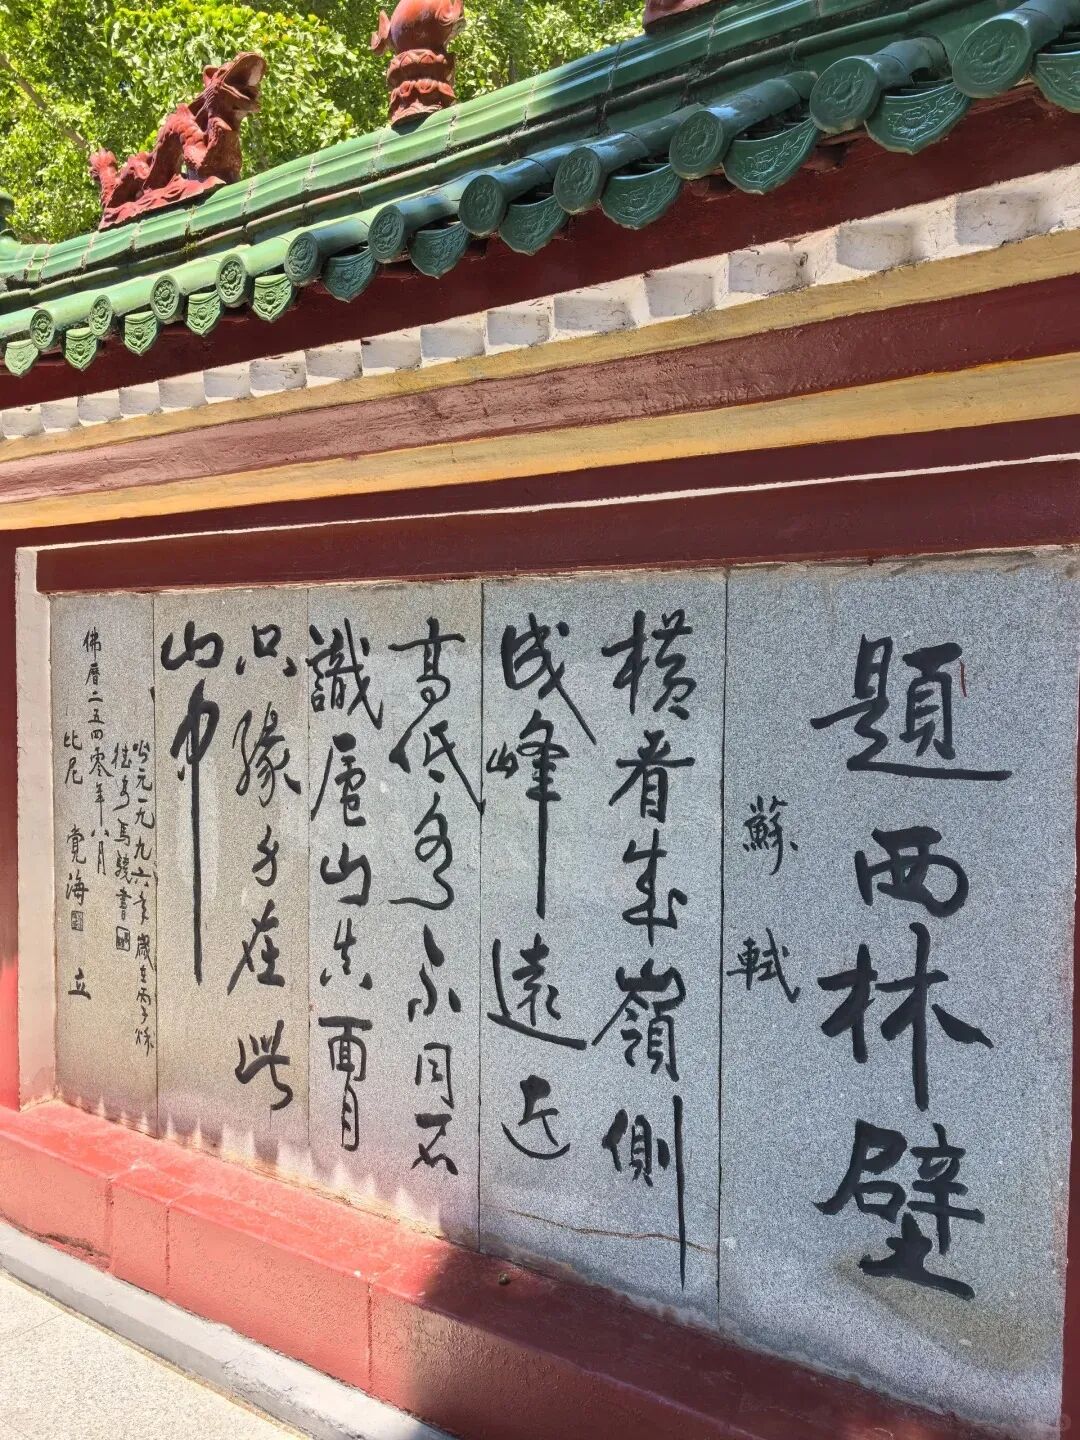 題西林壁
蘇軾
橫看成嶺側
成峰遠近
高低各不同不
識廬山真面目
只緣身在此
山中
公元一九九六年歲在
馬驍書
佛曆二五四零年八月
比尼 覺海 立